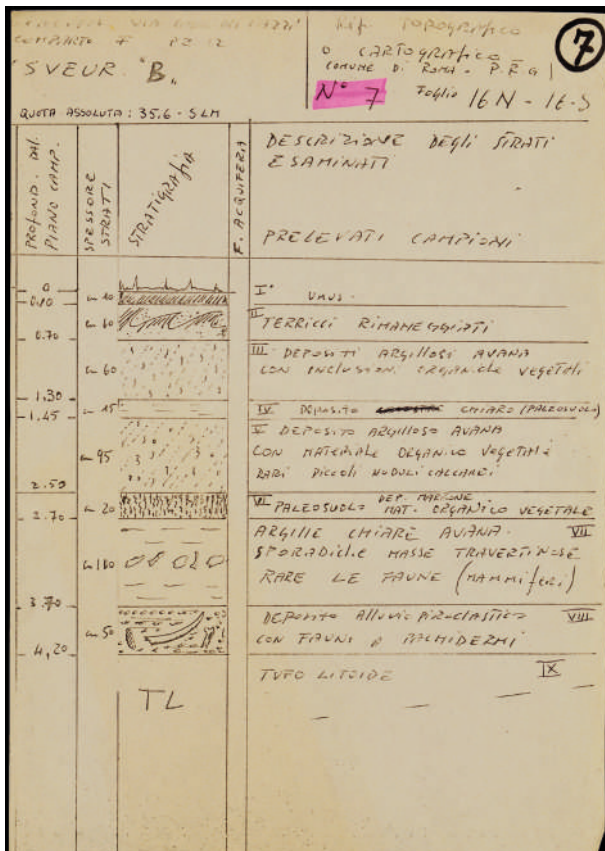 VIA
COMPARTO F PZ 12
SVEUR "B"
QUOTA ASSOLUTA: 35.6 - SLM
Rif. TOPOGRAFICO
O CARTOGRAFICO
COMUNE DI ROMA - P.R.G.
N° 7 Foglio 16N - 16-S
7
PROFOND. DAL
PIANO CAMP.
SPESSORE
STRATI
STRATIGRAFIA
F. ACQUIFERA
DESCRIZIONE DEGLI STRATI
ESAMINATI
PRELEVATI CAMPIONI
0
0.10
10
I° UMUS.
0.70
60
II TERRICCI RIMANEGGIATI
60
III DEPOSITI ARGILLOSI AVANA
CON INCLUSION. ORGANICHE VEGETALI
1.30
1.45
15
IV DEPOSITO CHIARO (PALEOSUOLO)
95
V DEPOSITO ARGILLOSO AVANA
CON MATERIALE ORGANICO VEGETALE
RARI PICCOLI NODULI CALCAREI
2.50
2.70
20
VI PALEOSUOLO DEP. MARRONE
MAT. ORGANICO VEGETALE
ARGILLE CHIARE AVANA. VII
100
SPORADICHE MASSE TRAVERTINOSE
RARE LE FAUNE (MAMMIFERI)
3.70
50
DEPOSITO ALLUVIO PIROCLASTICO VIII
CON FAUNE A PACHIDERMI
4,20
TUFO LITOIDE IX
TL